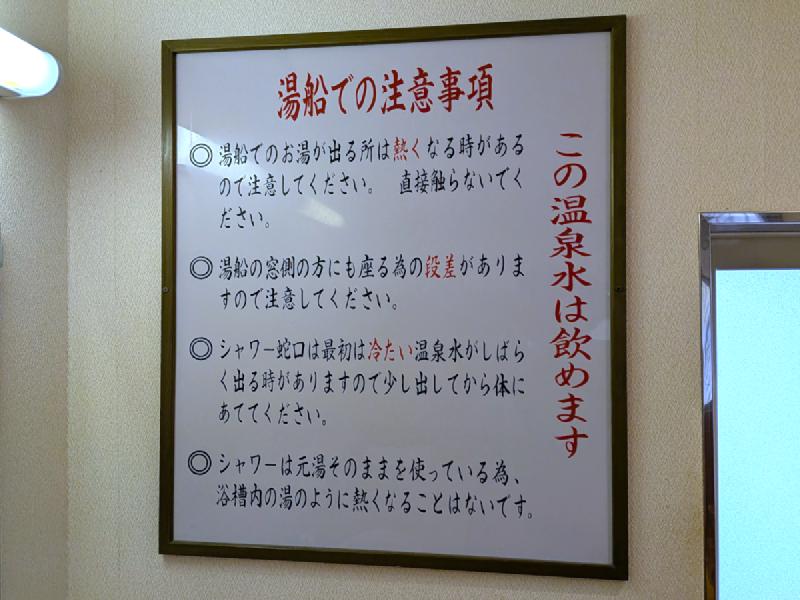 湯船での注意事項
◎ 湯船でのお湯が出る所は熱くなる時がある
ので注意してください。 直接触らないでく
ださい。
◎ 湯船の窓側の方にも座る為の段差がありま
すので注意してください。
◎ シャワー蛇口は最初は冷たい温泉水がしばら
く出る時がありますので少し出してから体に
あててください。
◎ シャワーは元湯そのままを使っている為、
浴槽内の湯のように熱くなることはないです。
この温泉水は飲めます